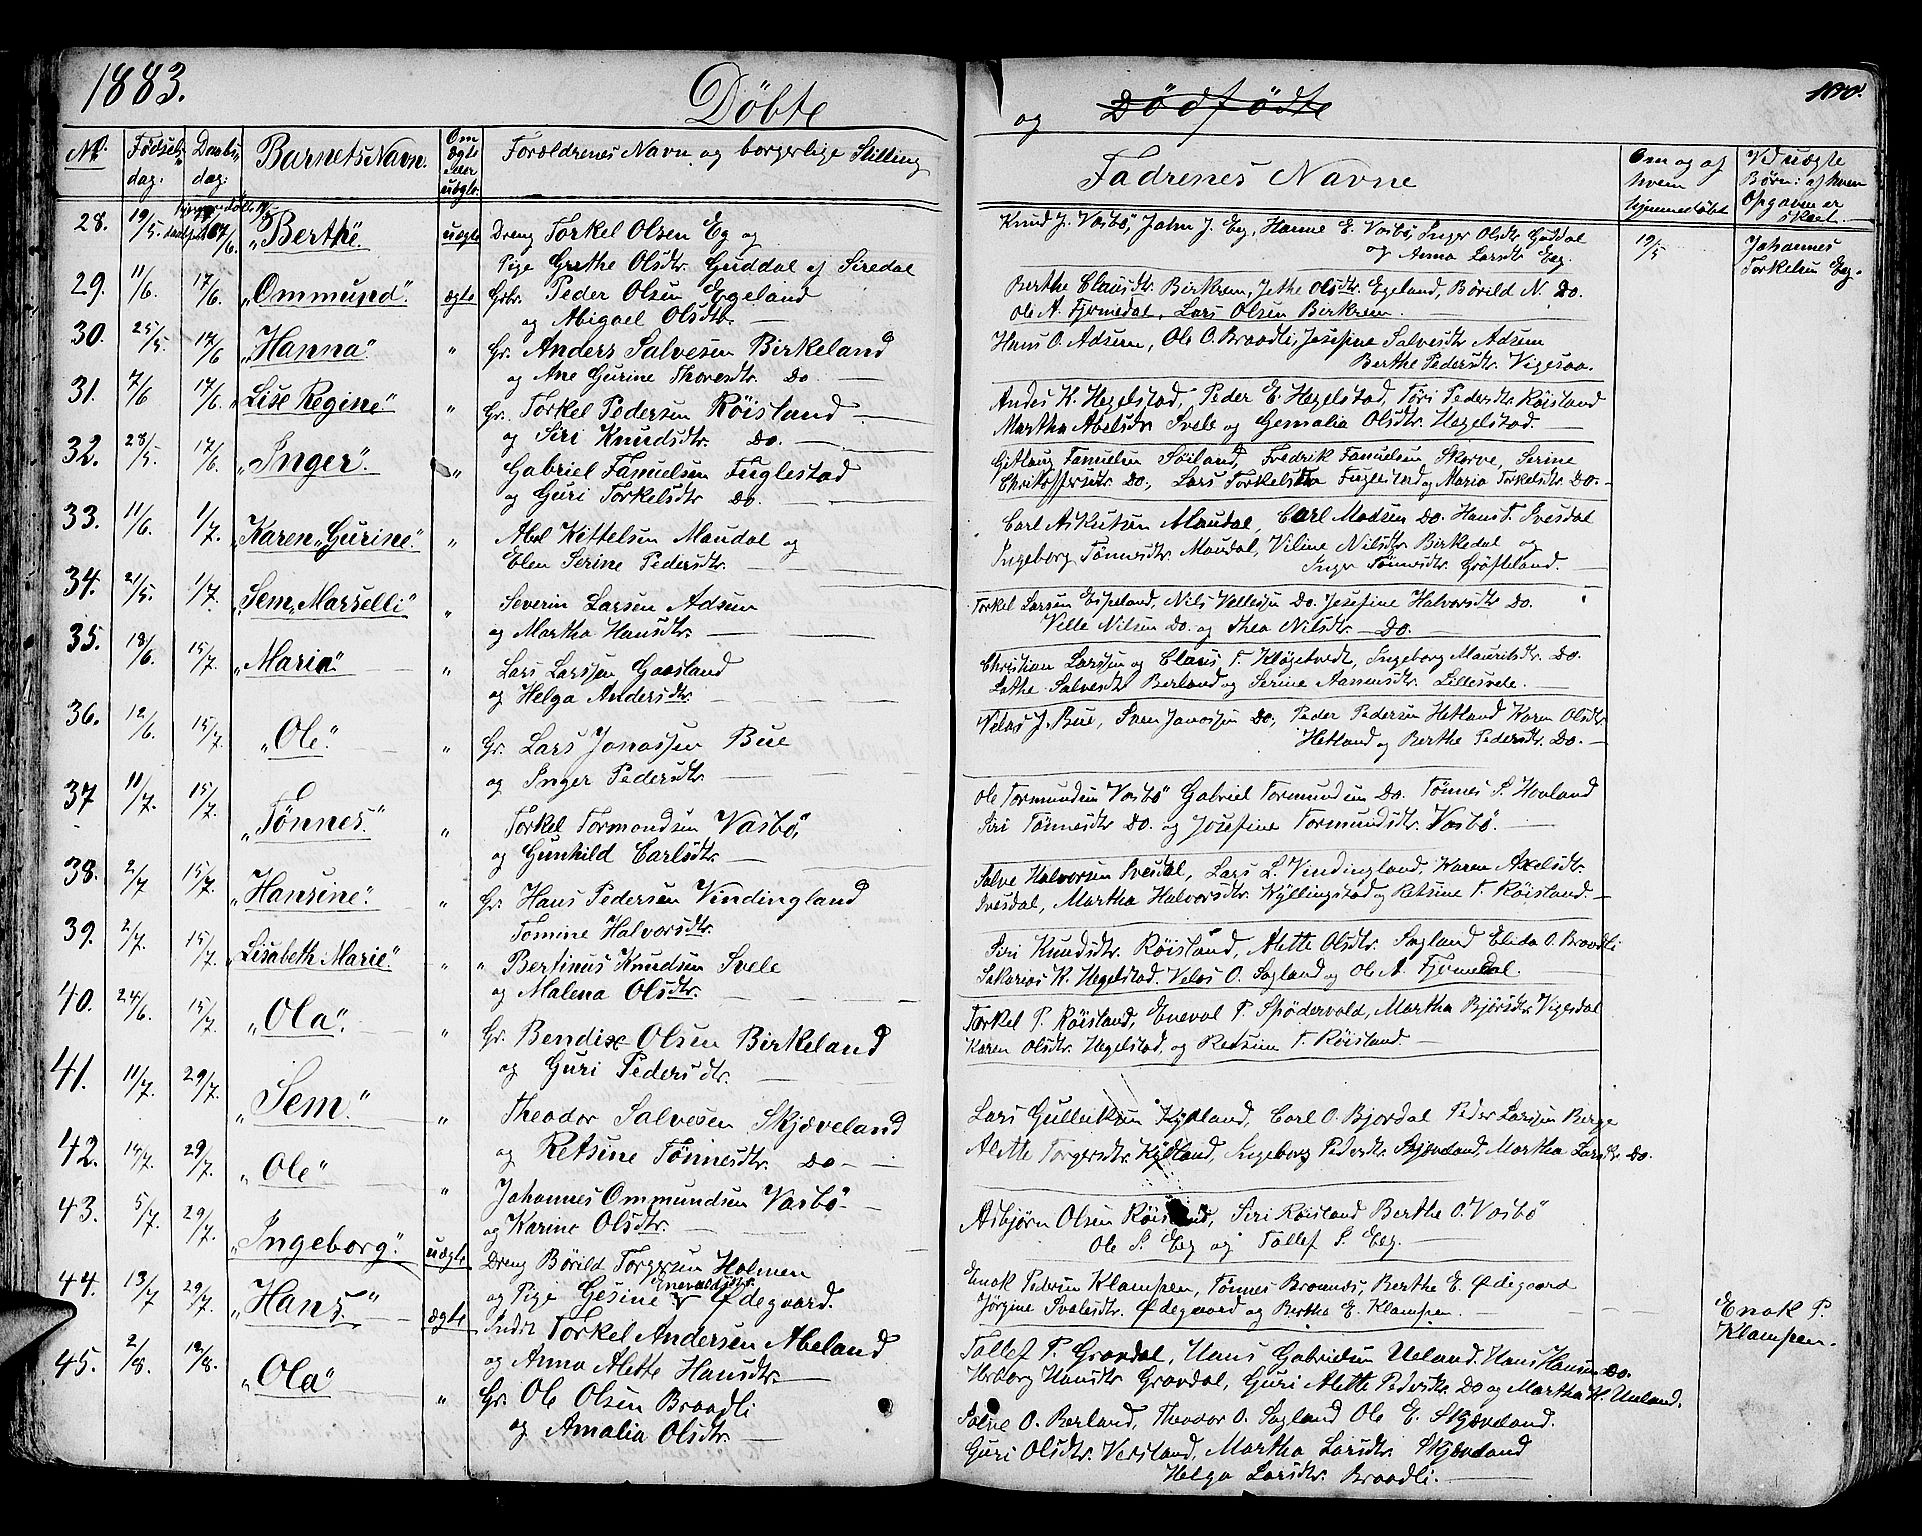 1883.
Döbte
og Dödfödte
100.
No. Födsels dag. Daabs dag. Barnets Navn. Om ægte eller uægte Forældrenes Navn og borgerlige Stilling Fadrenes Navne Om og af hvem hjemmedöbt Ved uægte Börn: af hvem Opgaven er skeet.
28. 19/5. 17/6. "Berthe" uægte Dreng Torkel Olsen Eg og
Pige Grethe Olsdtr. Guddal af Siredal
Knud J. Vasbö, John J. Eeg, Hanne E. Vasbö, Inger Olsdtr Guddal
og Anna Larsdtr Eeg.
19/5
Johannes
Torkelsen Eeg.
29. 11/6. 17/6. "Ommund" ægte Gbr. Peder Olsen Egeland
og Abigael Olsdtr.
Berthe Clausdtr. Birkrem, Jethe Olsdtr. Egeland, Börild N. Do.
Ole A. Fjermedal, Lars Olsen Birkrem.
30. 25/5. 17/6 "Hanna" " Gr. Anders Salvesen Birkeland
og Ane Gurine Thoresdtr. Do
Hans O. Adsem, Ole O. Braadli, Josefine Salvesdtr Adsem
Berthe Pedersdtr. Vigesaa.
31. 7/6 17/6. "Lise Regine" " Gr. Torkel Pedersen Röisland
og Siri Knudsdtr. Do.
Andes K. Hegelstad, Peder E. Hegelstad, Töri Pedersdtr Röisland
Martha Abelsdtr Svele og Gemalia Olsdtr. Hegelstad.
32. 28/5. 17/6. "Inger" " Gabriel Famuelsen Fuglestad
og Guri Torkelsdtr Do.
Gitlaug Famuelsen Söiland, Fredrik Famuelsen Skarve, Serine
Christoffersdtr Do, Lars Torkelsen Fuglestad og Maria Torkelsdtr Do.
33. 11/6. 1/7. "Karen Gurine" " Abel Kittelsen Maudal og
Elen Serine Pedersdtr.
Carl Maudal, Carl Madsen Do. Hans T. Ivesdal
Ingeborg Tönnesdtr. Maudal, Viline Nilsdtr. Birkedal og
Inger Tönnesdtr. Gröfteland.
34. 21/5. 1/7. "Sem Marselli" " Severin Larsen Adsem
og Martha Hansdtr.
Torkel Larsen Espeland, Nils Vellesen Do. Josefine Halvorsdtr Do.
Velle Nilsen Do. og Thea Nilsdtr. Do.
35. 18/6. 15/7. "Maria" " Lars Larssen Gaasland
og Helga Andersdtr.
Christian Larssen og Claus T. Klögetvedt, Ingeborg Mauritsdtr. Do.
Lathe Salvesdtr Berland og Serine Aanensdtr. Lillesvele.
36. 12/6. 15/7. "Ole" " Gr. Lars Jonassen Bue
og Inger Pedersdtr.
Velas J. Bue, Sven Jonassen Do, Peder Pedersen Hetland Karen Olsdtr.
Hetland og Berthe Pedersdtr. Do.
37 11/7. 15/7. "Tönnes" " Torkel Tormondsen Vasbö,
og Gunhild Carlsdtr.
Ole Tormundsen Vasbö Gabriel Tormundsen Do. Tönnes S. Hovland
Siri Tönnesdtr Do. og Josefine Tormundsdtr. Vasbö.
38. 2/7 15/7. "Hansine" " Gr. Hans Pedersen Vindingland
Tomine Halvorsdtr.
Salve Halvorsen Ivesdal, Lars L. Vindingland, Karen Axelsdtr.
Ivesdal, Martha Halvorsdtr. Kyllingstad og Retsine T. Röisland.
39. 2/7. 15/7. "Lisabeth Marie" " " Bertinus Knudsen Svele
og Malena Olsdtr.
Siri Knudsdtr. Röisland, Alette Olsdtr. Sagland Elida O. Braadli
Sakarias K. Hegelstad. Velas O. Sagland og Ole A. Fjermedal.
40. 24/6. 15/7. "Ola" " Gr. Bendix Olsen Birkeland
og Guri Pedersdtr.
Torkel P. Röisland, Eneval P. Spödervold, Martha Bjorsdtr. Vigesdal
Karen Olsdtr. Hegelstad, og Retsine T. Röisland.
41. 11/7. 29/7. "Sem" " Theodor Salvesen Skjæveland
og Retsine Tönnesdtr. Do
Lars Gulleiksen Kydland, Carl O. Bjordal Peder Larssen Berge
Alette Torgersdtr. Kydland, Ingeborg Pedersdtr. Skjæveland, Martha Larsdtr Do.
42. 14/7. 29/7. "Ole" " Johannes Ommundsen Vasbö
og Karina Olsdtr.
Asbjörn Olsen Röisland, Siri Röisland Berthe O. Vasbö
Ole S. Eeg og Tollef S. Eeg.
43. 5/7. 29/7. "Ingeborg" uægte Dreng Börild Torgersen Holmen
og Pige Gesine Enevaldsdtr. Ödegaard.
Enok Pedersen Klampen, Tönnes Braands, Berthe E. Ödegaard
Jörgine Svalesdtr. Ödegaard og Bertha E. Klampen.
Enok P.
Klampen.
44. 13/7 29/7. "Hans" ægte Indst Torkel Andersen Abeland
og Anna Alette Hansdtr.
Tollef P. Gravdal, Hans Gabrielsen Ueland. Hans Hansen Do.
Herborg Hansdtr Gravdal, Guri Alette Pedersdtr. Do og Martha H. Ueland.
45. 2/8. 12/8. "Ola" " Gr. Ole Olsen Braadli
og Amalia Olsdtr.
Salve O. Berland, Theodor O. Sagland Ole E. Skjæveland.
Guri Olsdtr. Versland, Martha Larsdtr. Skjæveland
Helga Larsdtr. Braadli.